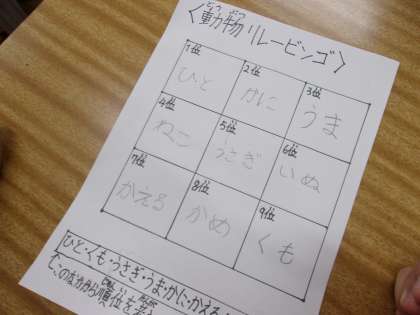 〈動物リレービンゴ〉
どうぶつ
1位 2位 3位
ひと かに うま
4位 5位 6位
ねこ うさぎ いぬ
7位 8位 9位
かえる かめ くも
ひと・くも・うさぎ・うま・かに・かえる
このなかから順位を